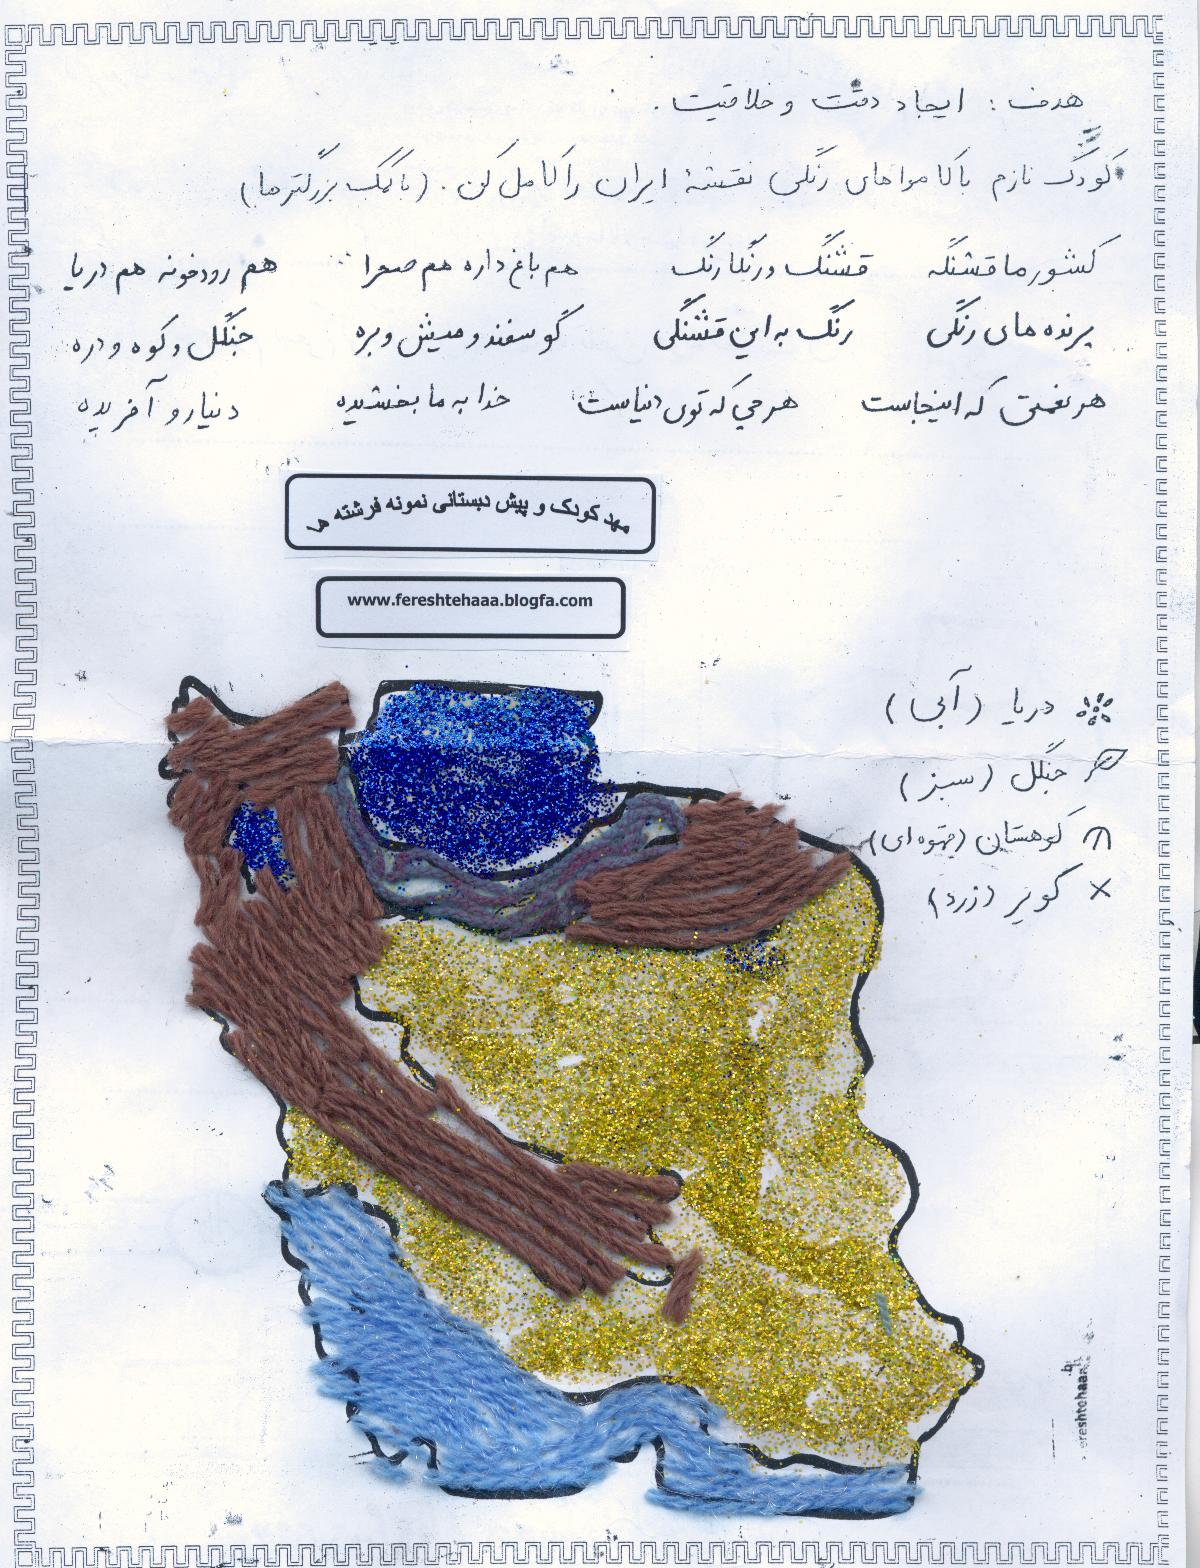 هدف : ایجاد دقت و خلاقیت .
کودک نازم با کامواهای رنگی نقشهٔ ایران را کامل کن . (با کمک بزرگترها)
کشور ما قشنگه قشنگ و رنگارنگ هم باغ داره هم صحرا هم رودخونه هم دریا
پرنده های رنگی رنگ به این قشنگی گوسفند و میش و بره جنگل و کوه و دره
هر نعمتی که اینجاست هر چی که توی دنیاست خدا به ما بخشیده دنیا رو آفریده
مهد کودک و پیش دبستانی نمونه فرشته ها
www.fereshtehaaa.blogfa.com
دریا (آبی)
جنگل (سبز)
کوهستان (قهوه ای)
× کویر (زرد)